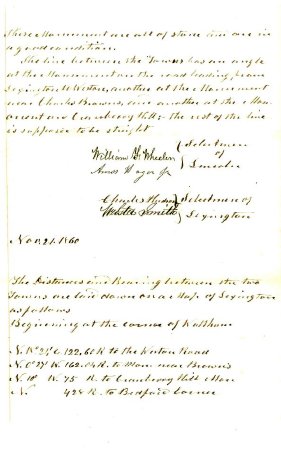 these Monument are all of stone and are in
a good condition.
The line between the Towns has an angle
at the Monument on the road leading from
Lexington to Weston, another at the Monument
near Charles Browns, and another at the Mon
ument on Cranberry Hill: the rest of the line
is supposed to be straight
William F. Wheeler
Amos Hagar Jr
Selectmen
of
Lincoln
Charles Hudson
Webster Smith
Selectmen of
Lexington
Nov 21. 1860
The Distances and Bearing between the two
Towns are laid down on a Map of Lexington
as follows
Beginning at the corner of Waltham
122,60 R to the Weston Road
162.04 R. to Mon. near Brown's
N. 10° W. 75 R. to Cranberry Hill Mon
N. 428 R to Bedford Corner